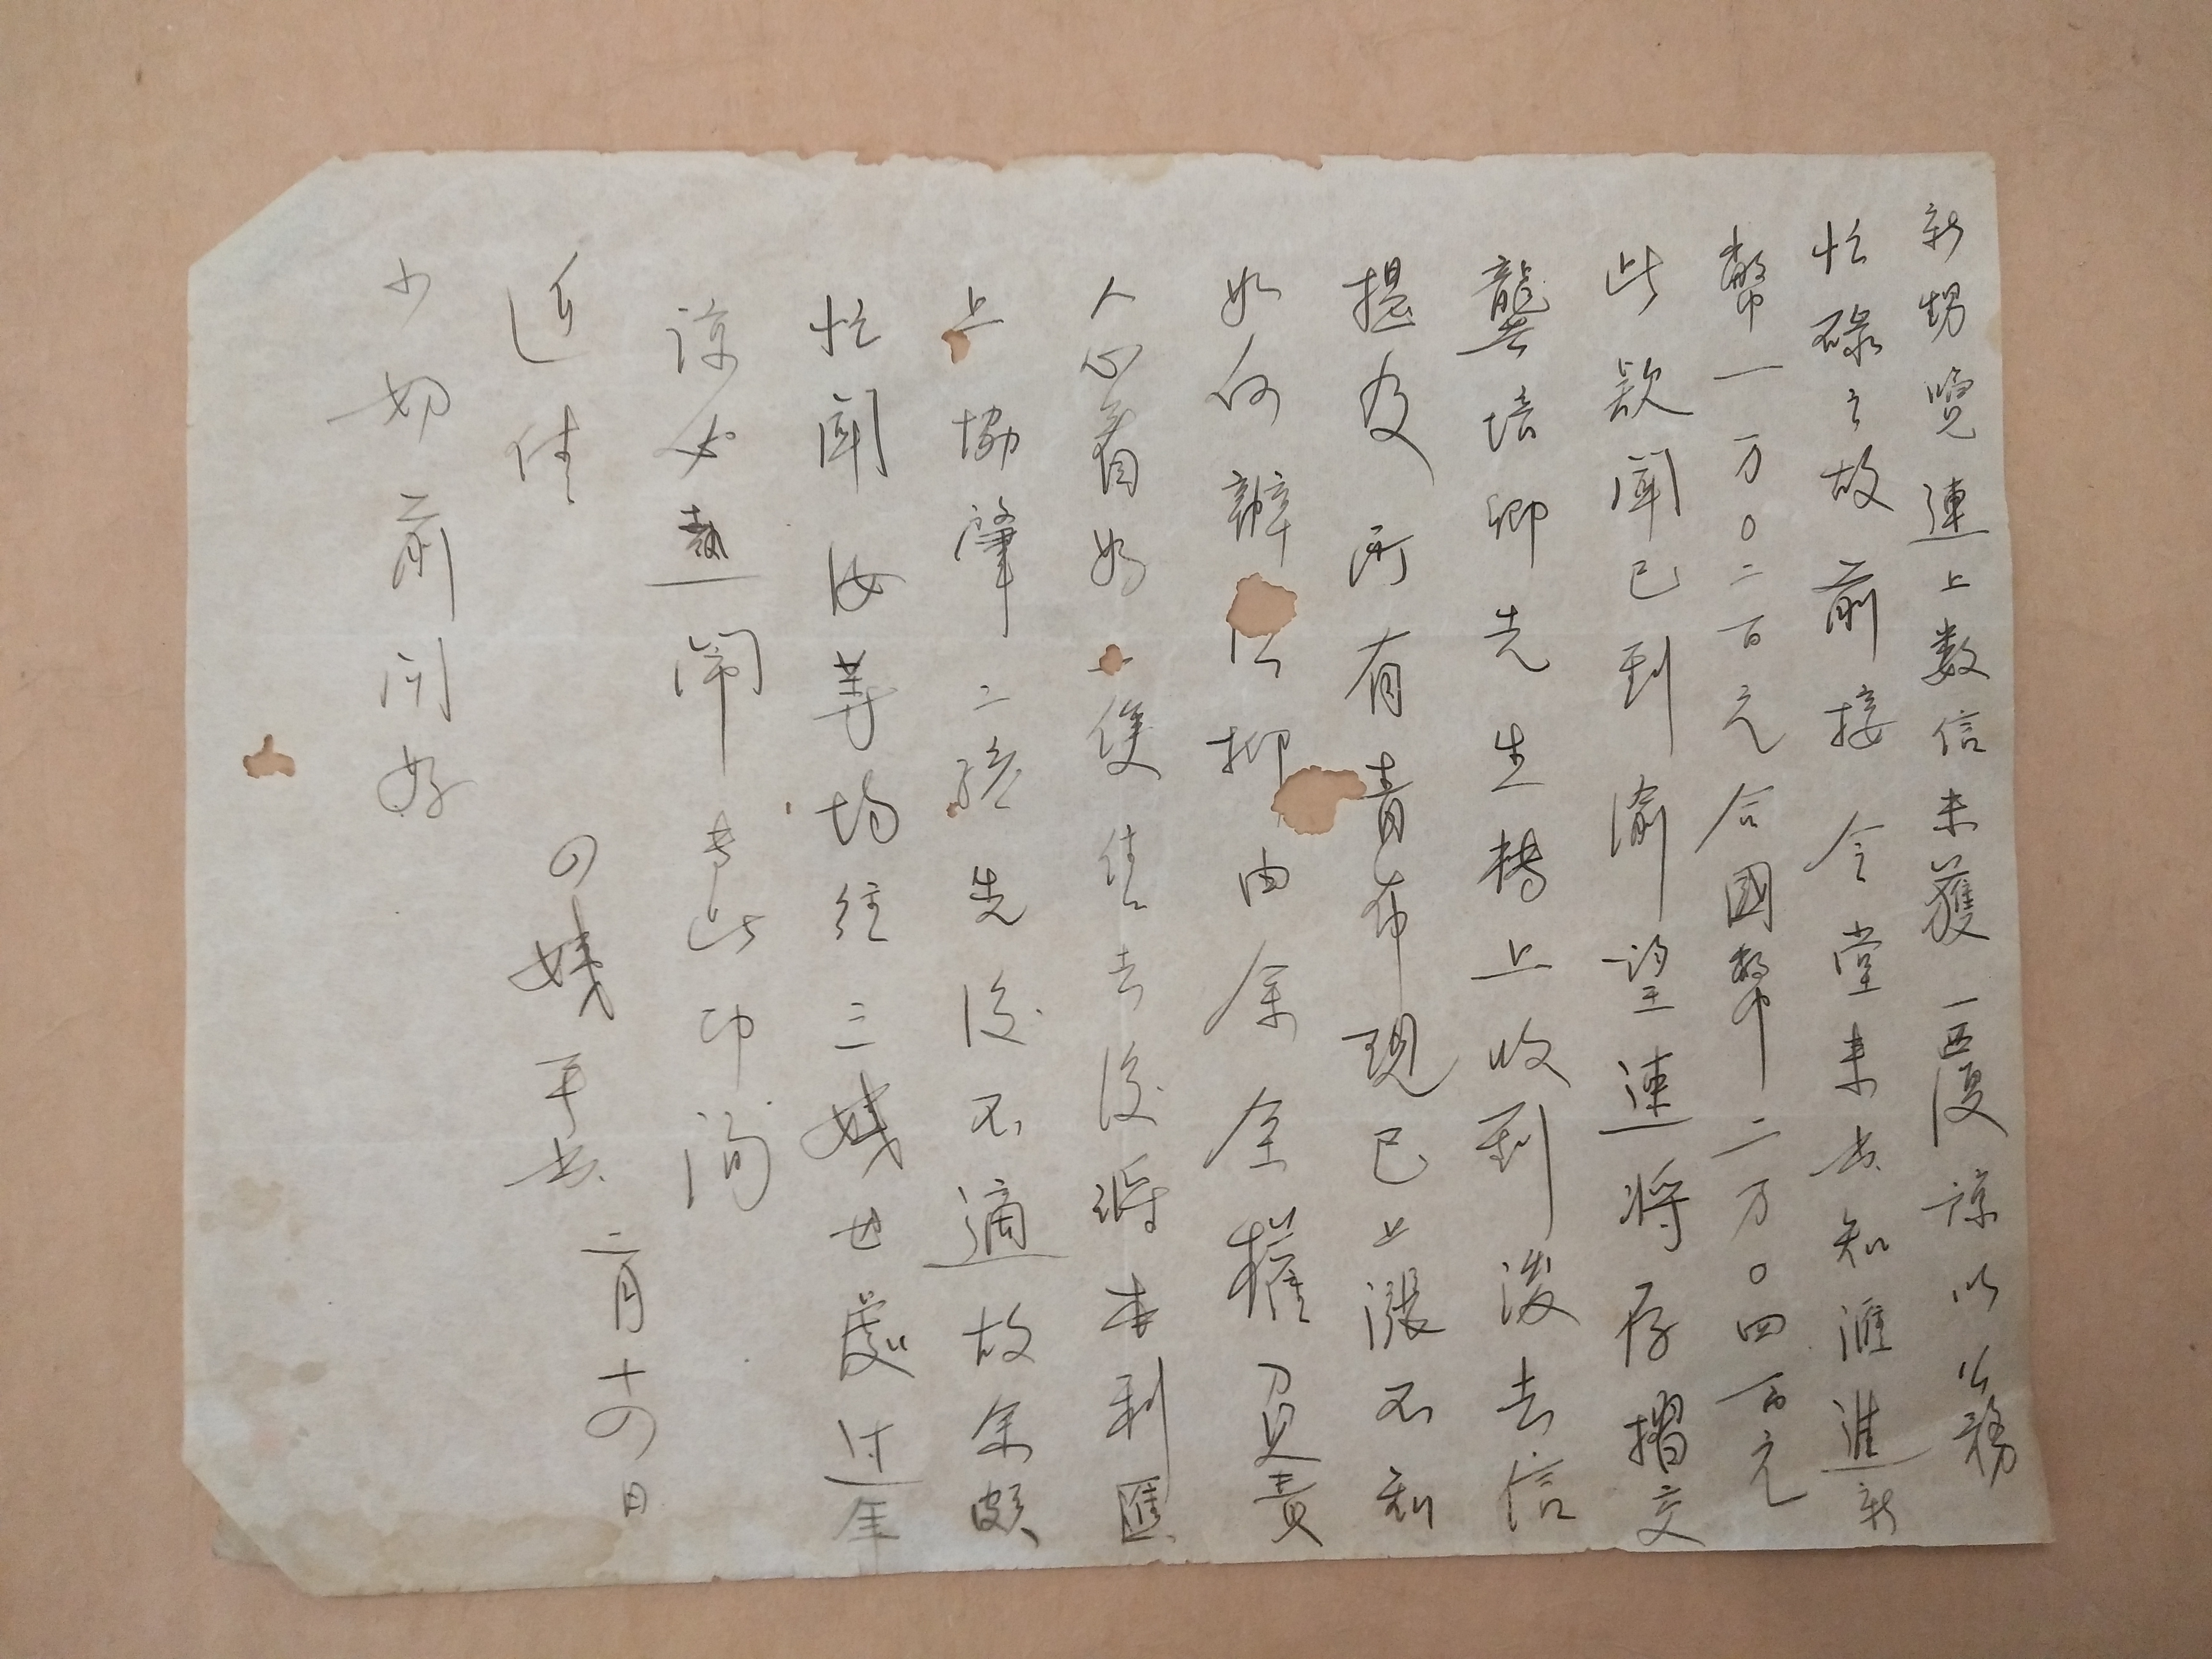 新甥覽連上數信未獲一函復諒以公務
忙碌之故前接令堂來書知滙進新
幣一万〇二百元合國幣二万〇四百元
此款聞已到渝望速將存摺交
龔培卿先生轉上收到後去信
提及所有青布現已上漲不知
如何辦法抑由余全權負責
人心看好一俟售去後將本利匯
上協肇二孩先後不適故余頗
忙聞汝等均往三姨母處过年
諒必熱鬧專此即询
近佳
四姨手书
二月十四日
少卿前问好